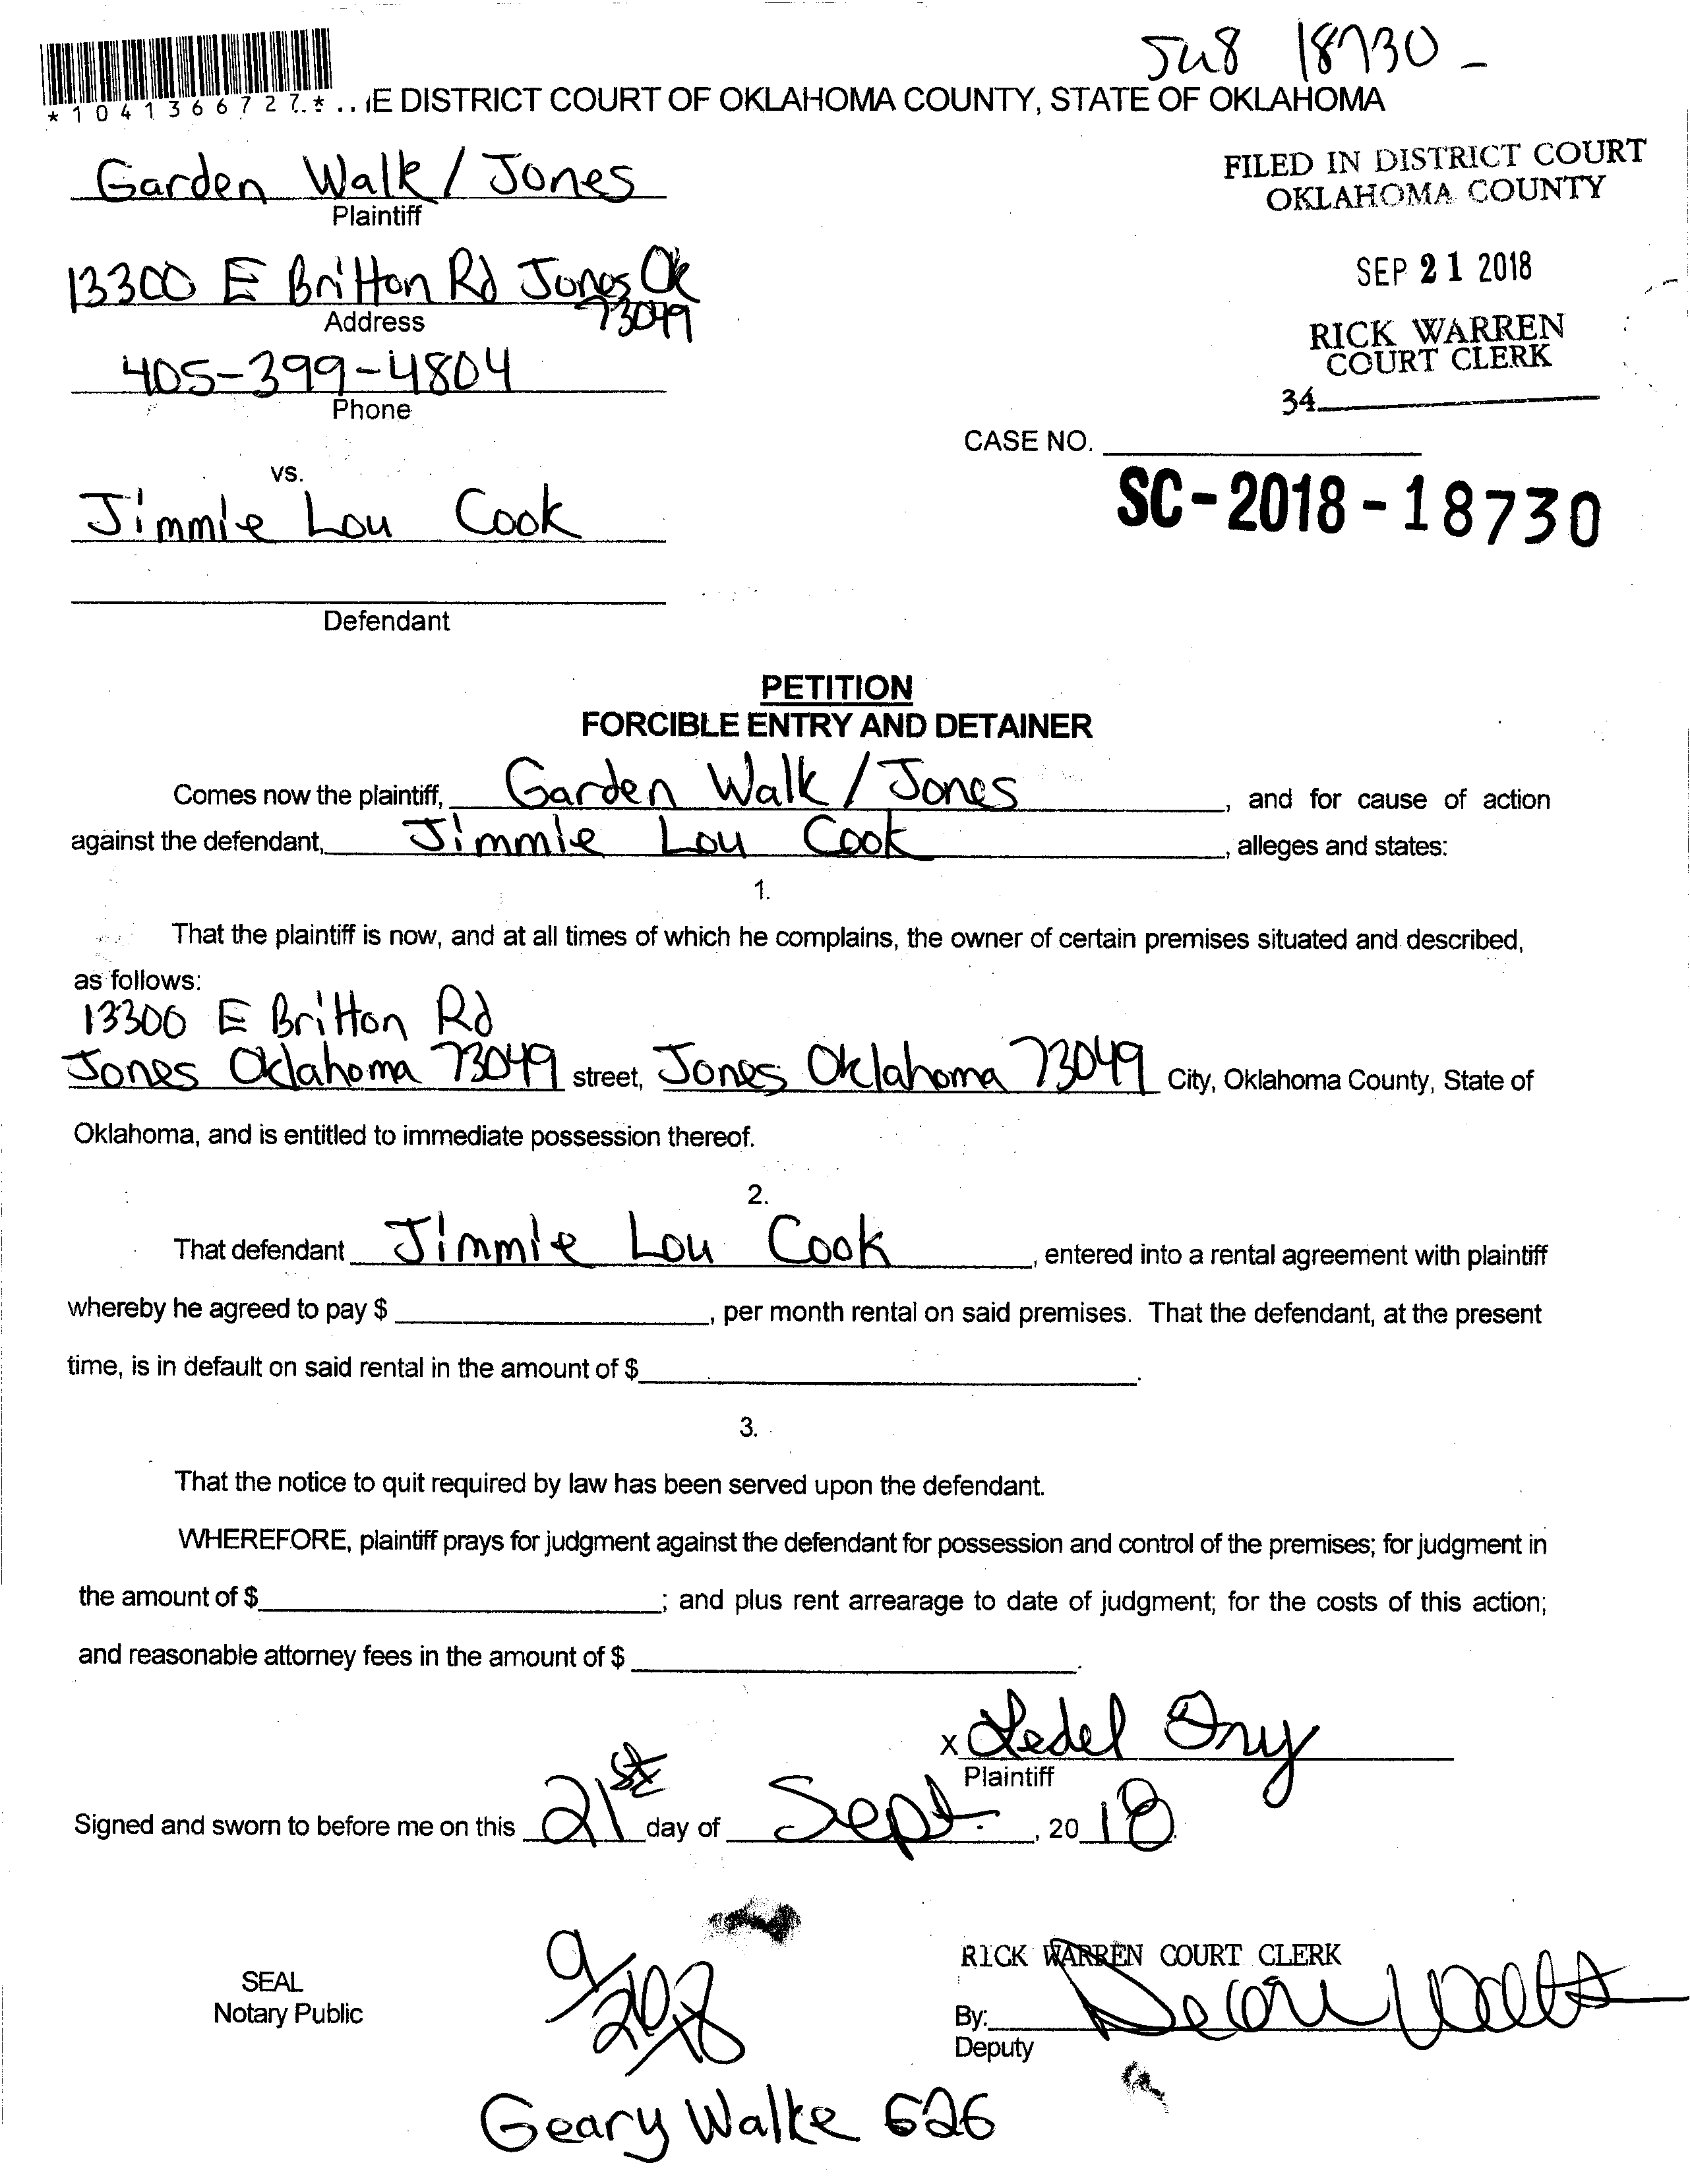 Ju8 18730 -
*1041366727.* ..IE DISTRICT COURT OF OKLAHOMA COUNTY, STATE OF OKLAHOMA
Garden Walk / Jones
Plaintiff
FILED IN DISTRICT COURT
OKLAHOMA COUNTY
13300 E Britton Rd Jones Ok
73049
Address
SEP 21 2018
RICK WARREN
COURT CLERK
405-399-4804
Phone
34
CASE NO.
SC-2018-18730
vs.
Jimmie Lou Cook
Defendant
PETITION
FORCIBLE ENTRY AND DETAINER
Comes now the plaintiff, Garden Walk / Jones, and for cause of action
against the defendant, Jimmie Lou Cook, alleges and states:
1.
That the plaintiff is now, and at all times of which he complains, the owner of certain premises situated and described,
as follows:
13300 E Britton Rd
Jones Oklahoma 73049 street, Jones Oklahoma 73049 City, Oklahoma County, State of
Oklahoma, and is entitled to immediate possession thereof.
2.
That defendant Jimmie Lou Cook, entered into a rental agreement with plaintiff
whereby he agreed to pay $, per month rental on said premises. That the defendant, at the present
time, is in default on said rental in the amount of $.
3.
That the notice to quit required by law has been served upon the defendant.
WHEREFORE, plaintiff prays for judgment against the defendant for possession and control of the premises; for judgment in
the amount of $; and plus rent arrearage to date of judgment; for the costs of this action;
and reasonable attorney fees in the amount of $.
x Ledel Ory
Plaintiff
Signed and sworn to before me on this 21st day of Sept., 2018.
SEAL
Notary Public
RICK WARREN COURT CLERK
By:
Deputy
Geary Walke 626